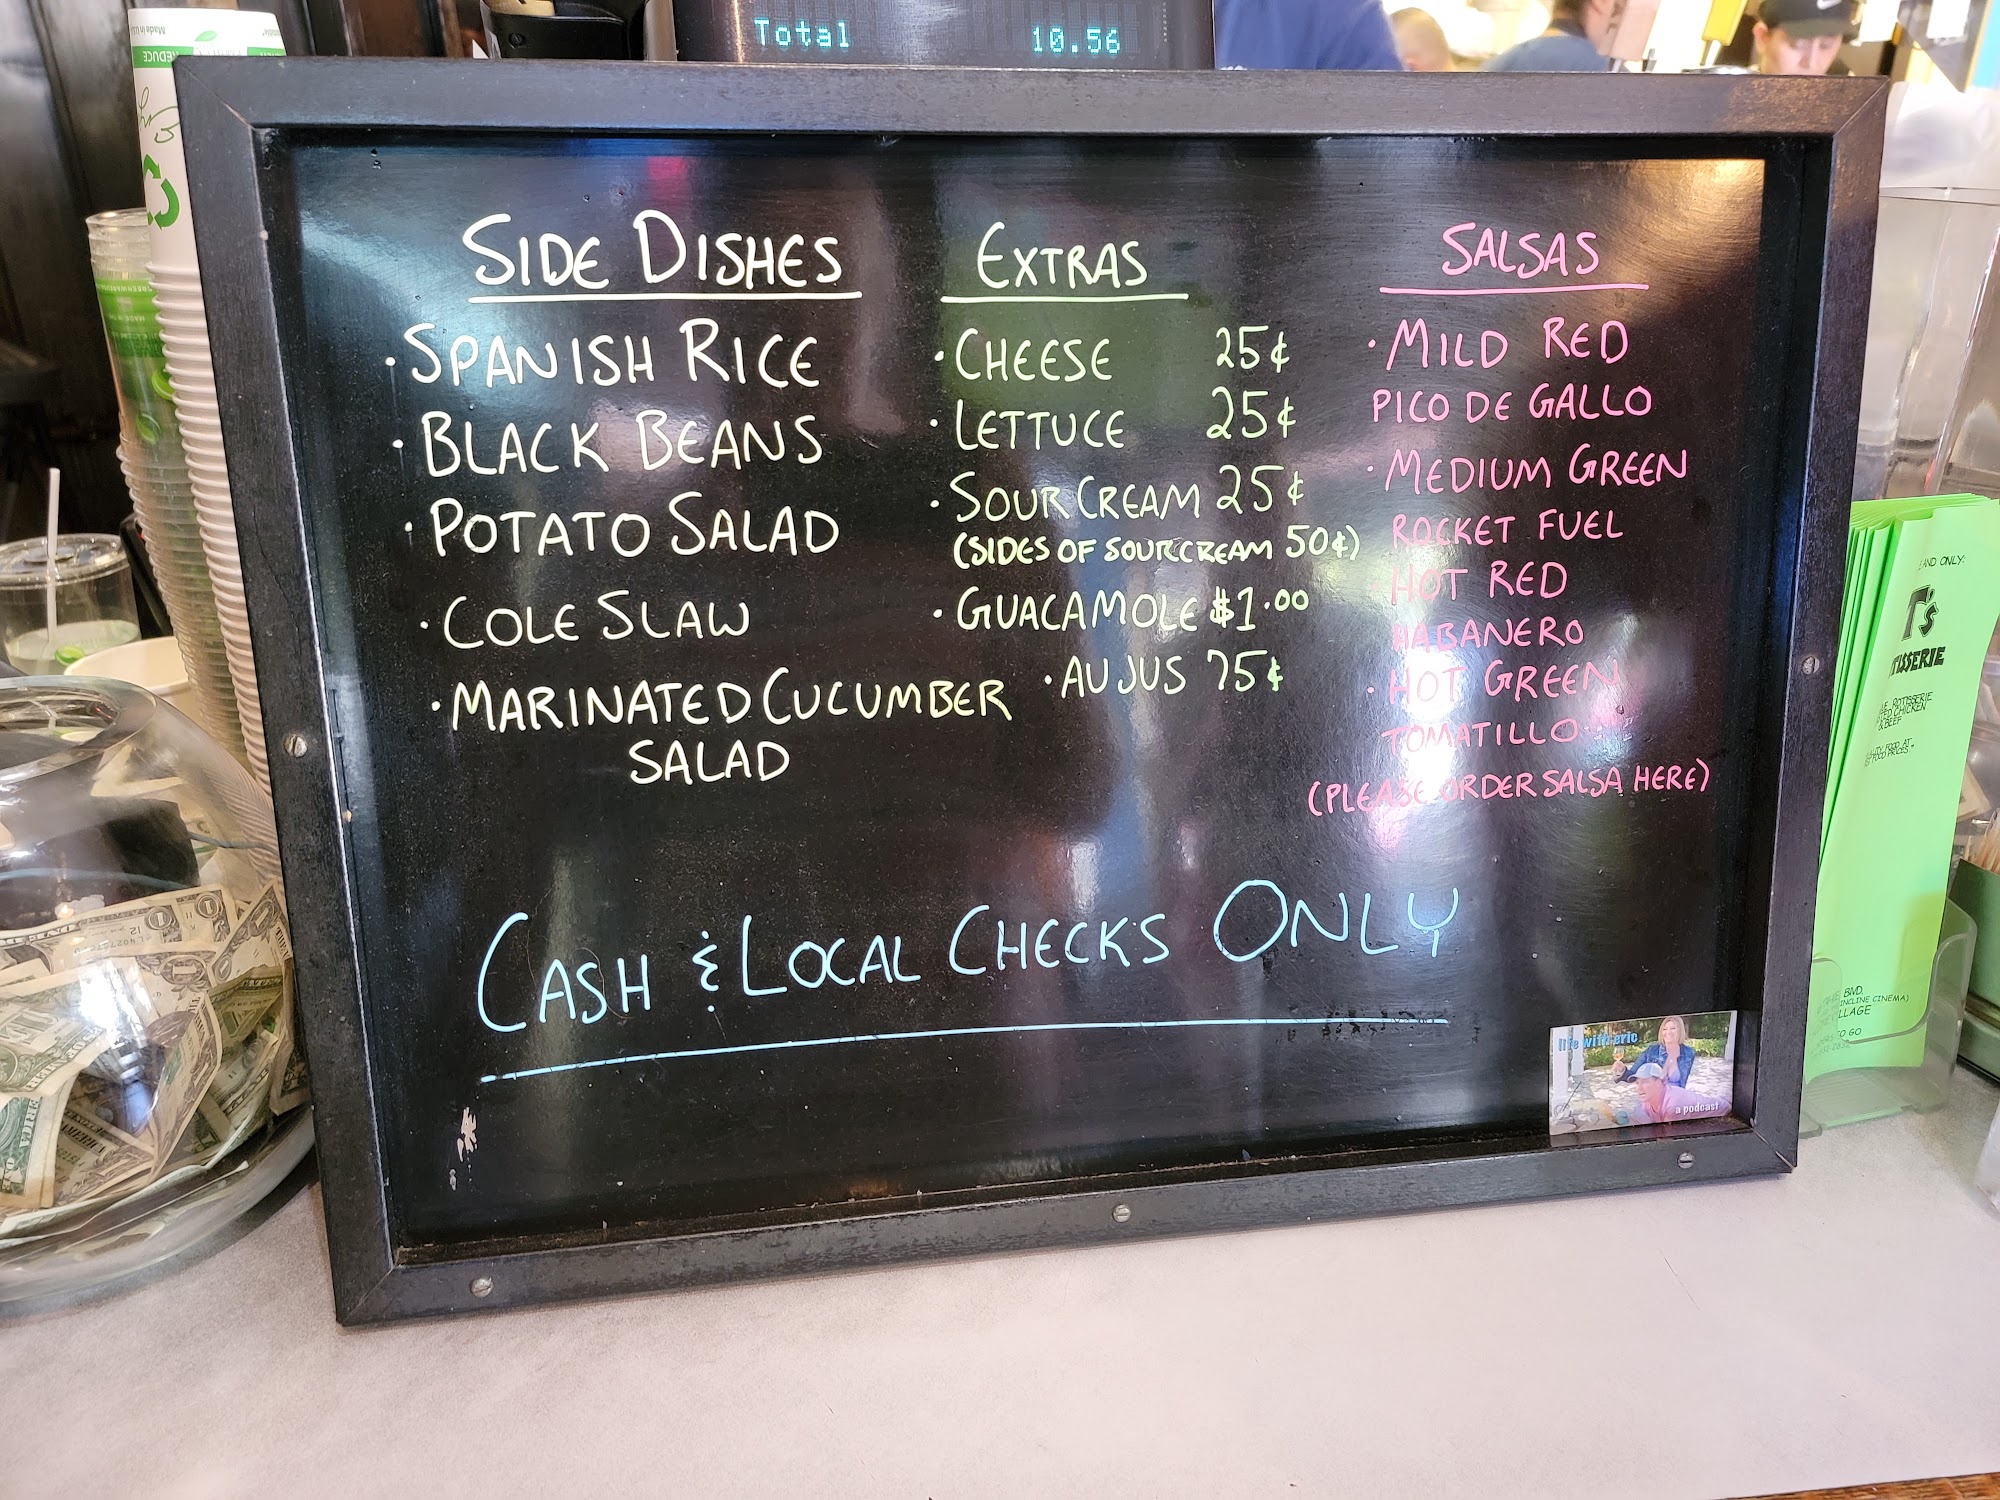 Total 10.56
Made in U.S.A.
REDUCE
SIDE DISHES
· SPANISH RICE
· BLACK BEANS
· POTATO SALAD
· COLE SLAW
· MARINATED CUCUMBER
SALAD
EXTRAS
· CHEESE 25¢
· LETTUCE 25¢
· SOUR CREAM 25¢
(SIDES OF SOUR CREAM 50¢)
· GUACAMOLE $1.00
· AU JUS 75¢
SALSAS
· MILD RED
PICO DE GALLO
· MEDIUM GREEN
ROCKET FUEL
· HOT RED
HABANERO
· HOT GREEN
TOMATILLO
(PLEASE ORDER SALSA HERE)
CASH & LOCAL CHECKS ONLY
life with eric
a podcast
E AND ONLY:
T's
TISSERIE
ROTISSERIE
CHICKEN
& BEEF
BLVD.
INCLINE CINEMA)
LLAGE
TO GO